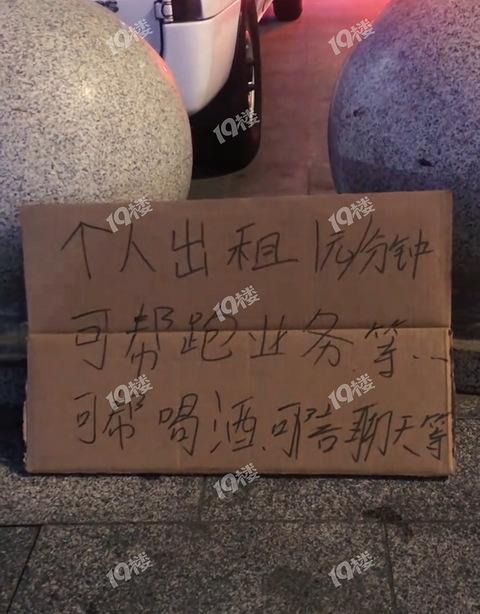 个人出租1元/分钟
可帮跑业务.等...
可帮喝酒.可陪聊天等
19楼
19楼
19楼
19楼
19楼
19楼
19楼
19楼
19楼
19楼
19楼
19楼